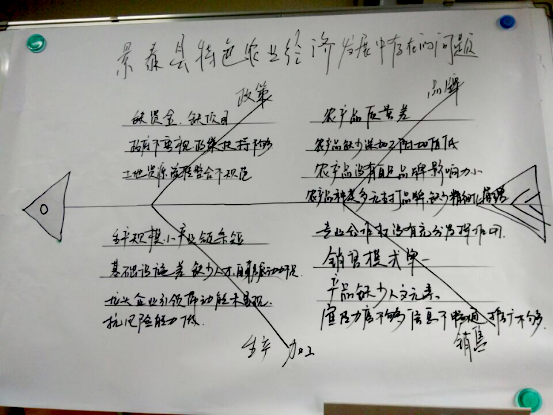 景泰县特色农业经济发展中存在的问题
政策
品牌
缺资金、缺项目
政府不重视 政策扶持不够
土地资源流转整合不规范
农产品质量差
农产品缺少深加工 附加值低
农产品没有自己品牌 影响力小
农产品种类多元 打品牌,缺少精细化管理
专业合作社没有充分发挥作用
生产规模小 产业链条短
基础设施差 缺少人才、自我发动力不足
龙头企业引领带动能未显现
抗风险能力低
销售模式单一
产品缺少人文元素
宣传力度不够 信息不畅通 推广不够
生产 加工
销售